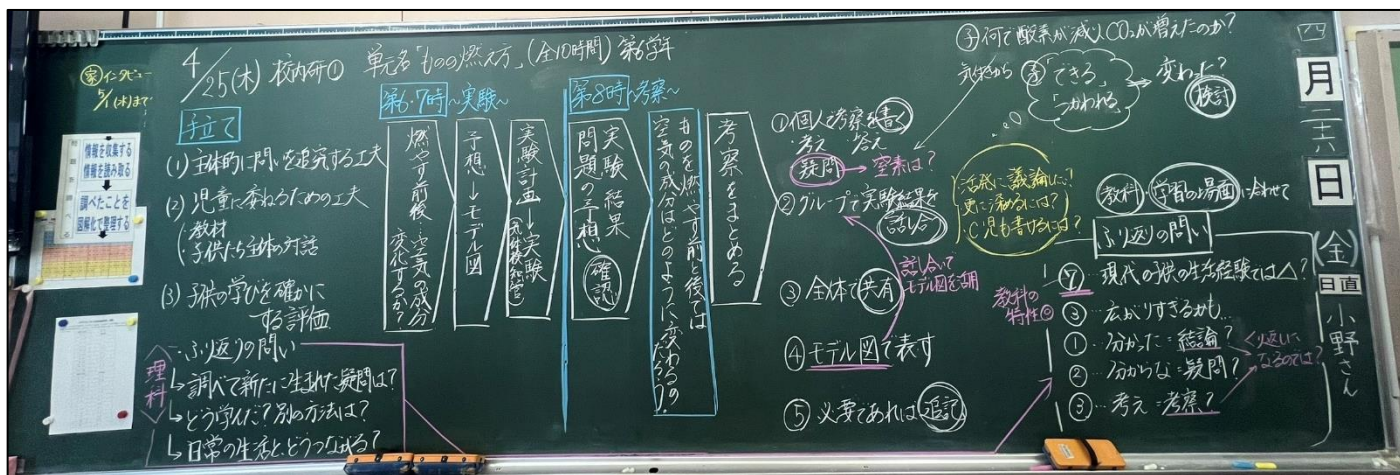 ㊂インタビュー
5/1(木)まで
情報を収集する
情報を読み取る
調べたことを
図解化で整理する
4/25(木) 校内研① 単元名「ものの燃え方」(全10時間) 第6学年
手立て
(1) 主体的に問いを追究する工夫
(2) 児童に委ねるための工夫
・教材
・子供たち主体の対話
(3) 子供の学びを確かに
する評価
理科
・ふり返りの問い
↳調べて新たに生まれた疑問は?
↳どう学んだ?別の方法は?
↳日常の生活と、どうつながる?
第6・7時~実験~
燃やす前後・空気の成分
変化する?
予想→モデル図
実験計画→実験
(気体検知管)
第8時~考察~
実験結果
問題の予想 確認
ものを燃やす前と後では
空気の成分はどのように変わるの
だろう?
考察をまとめる
①個人で考察を書く
・考え ・答え
疑問→窒素は?
②グループで実験結果を
話し合う
話し合いで
モデル図を活用
③全体で共有
④モデル図で表す
⑤必要であれば追記
㋙何で酸素が減りCO₂が増えたのか?
気体から
「できる」
「つかわれる」
変わった?
検討
・活発に議論した?
・更に深めるには?
・C児も書けるには?
教材 学習の場面に合わせて
ふり返りの問い
教科の
特性◎
㋳…現代の子供の生活経験では△?
③広がりすぎるかも…
①…分かった=結論?
②…分からな=疑問?
③…考え=考察?
くり返しに
なるのでは?
四
月
二六
日
(金)
日直
小野さん